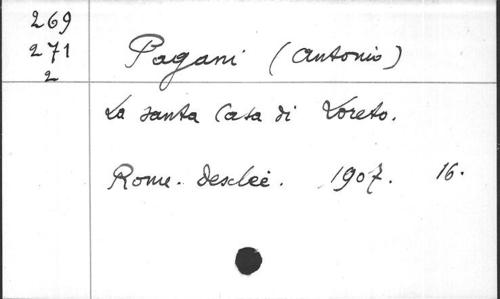 269
271
2
Pagani (Antonio)
La santa Casa di Loreto.
Rome. Desclée. 1907. 16.